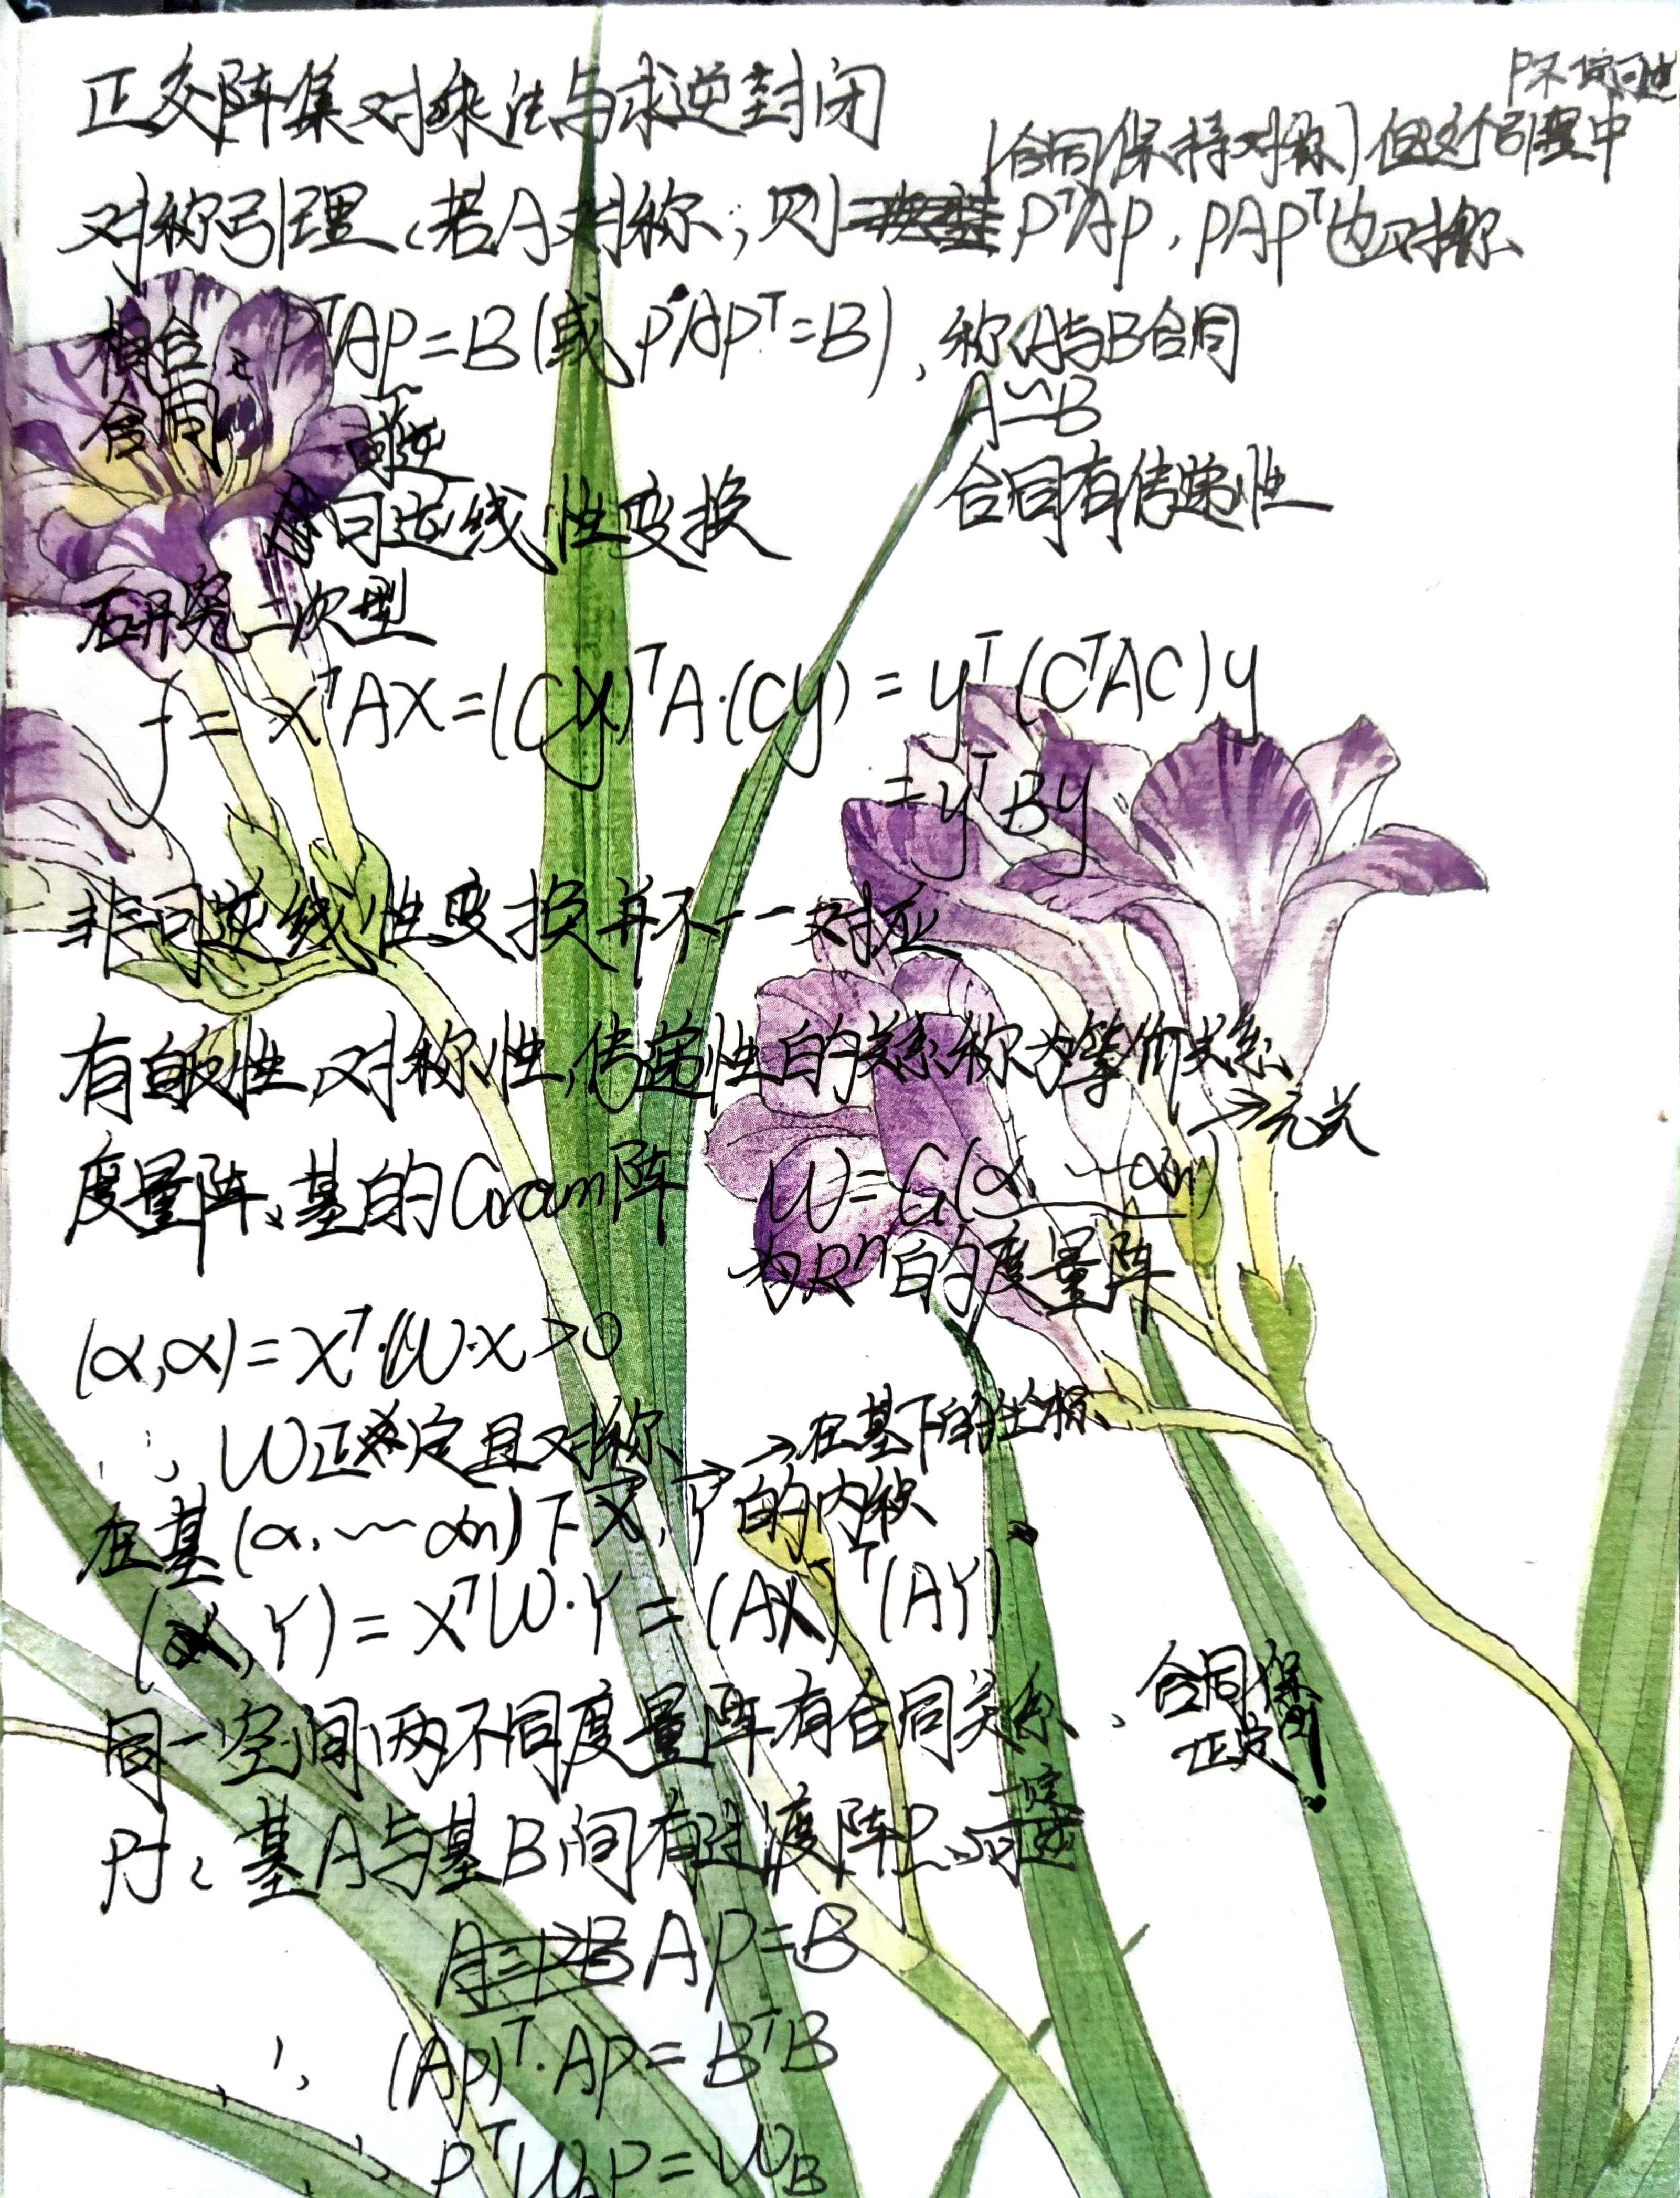 正交阵集对乘法与求逆封闭
P不一定可逆
(合同保持对称)但这个引理中
对称引理:若A对称,则 PᵀAP,PAPᵀ也对称
相合: PᵀAP=B(或 PAPᵀ=B),称A与B合同
合同 可逆 A≃B
可逆线性变换 合同有传递性
研究二次型
f = XᵀAX=(CY)ᵀA·(CY) = Yᵀ(CᵀAC)Y
=YᵀBY
非可逆线性变换并不一一对应
有自反性,对称性,传递性的关系称为等价关系
→无关
度量阵:基的Gram阵 W=G(α₁~αn)
为Rⁿ的度量阵
(α,α)=Xᵀ·W·X>0
∴W正定且对称 →在基下的坐标
在基(α₁~αn)下X,Y的内积
(X,Y)=XᵀW·Y=(AX)ᵀ(AY)
同一空间两不同度量阵有合同关系. 合同保
正定!
Pf: 基A与基B间有过渡阵P,一定可逆
AP=B
∴ (AP)ᵀ·AP=BᵀB
∴ PᵀW_AP=W_B